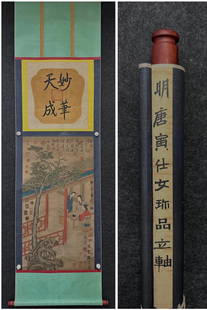 妙華
天成
明唐寅仕女珎品立軸